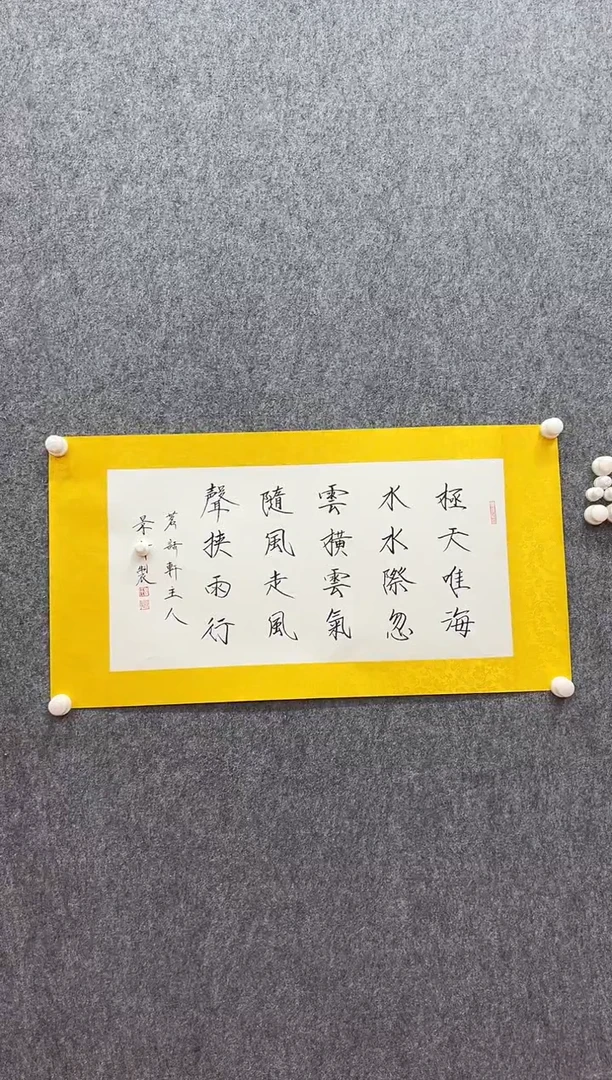 極天唯海
水水際忽
雲橫雲氣
隨風走風
聲挾雨行
詩軒主人
製